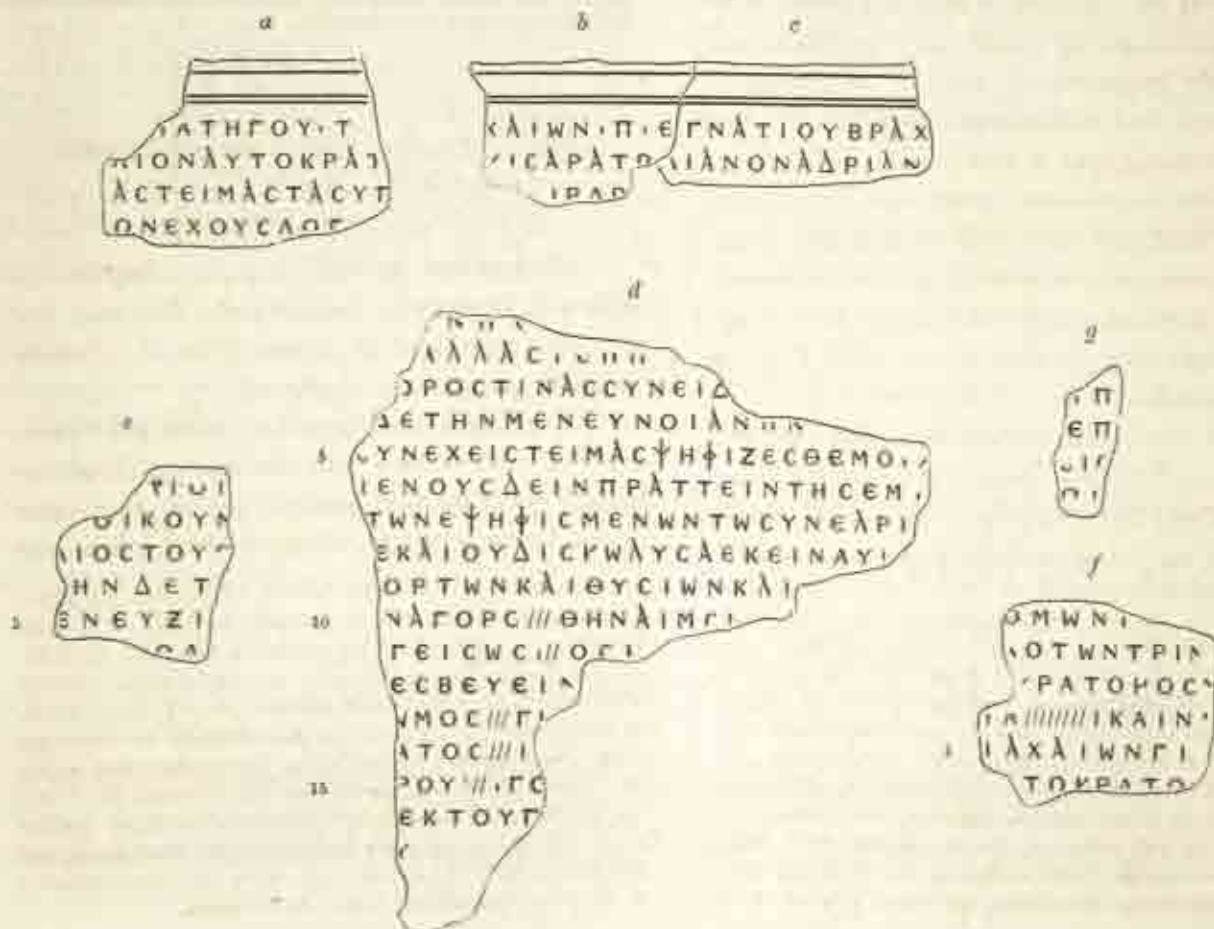 a
ΑΤΗΓΟΥ Τ
ΠΙΟΝΑΥΤΟΚΡΑΤ
ΑϹΤΕΙΜΑϹΤΑϹΥΠ
ΟΝΕΧΟΥϹΛΟΓ
b
c
ΧΑΙWΝ Π ΕΓΝΑΤΙΟΥΒΡΑΧ
ΙϹΑΡΑΤΟ ΑΙΑΝΟΝΑΔΡΙΑΝ
d
ΑΛΛΑϹ
ΟΡΟϹΤΙΝΑϹϹΥΝΕΙΔ
ΔΕΤΗΝΜΕΝΕΥΝΟΙΑΝ
5
ΥΝΕΧΕΙϹΤΕΙΜΑϹΨΗΦΙΖΕϹΘΕΜΟ
ΙΕΝΟΥϹΔΕΙΝΠΡΑΤΤΕΙΝΤΗϹΕΜ
ΤWΝΕΨΗΦΙϹΜΕΝWΝΤWϹΥΝΕΔΡΙ
ΕΚΑΙΟΥΔΙϹΚWΛΥϹΑΕΚΕΙΝΑΥΙ
ΟΡΤWΝΚΑΙΘΥϹΙWΝΚΑΙ
10
ΝΑΓΟΡϹ///ΘΗΝΑΙΜΓΙ
ΓΕΙϹWϹ///ΟΓΙ
ΕϹΒΕΥΕΙΝ
WΜΟϹ///ΓΙ
ΑΤΟϹ///Ι
15
ΡΟΥ///ΓϹ
ΕΚΤΟΥΓ
e
ΟΙΚΟΥΝ
ΛΙΟϹΤΟΥ
ΗΝΔΕΤ
5
ΕΝΕΥΞΙ
g
Π
ΕΠ
f
ΟΜWΝΙ
ΟΤWΝΤΡΙΝ
ΡΑΤΟΡΟϹ
Α////////ΙΚΑΙΝ
5
ΙΑΧΑΙWΝΓΙ
ΤΟΚΡΑΤΟ